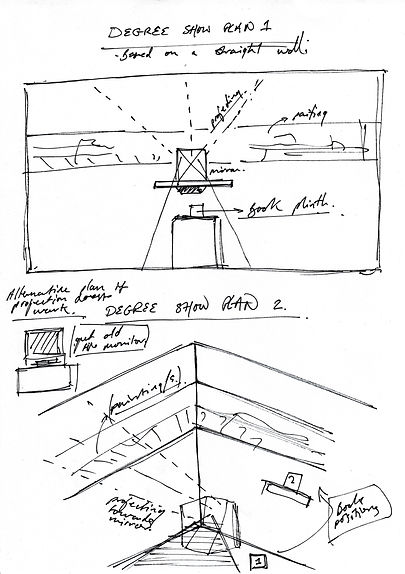 DEGREE SHOW PLAN 1
- Based on a straight wall.
projecting.
painting
mirror.
Book plinth.
Alternative plan if
projection doesn't
work.
DEGREE SHOW PLAN 2.
get old
monitor
painting(s).
projecting
towards
mirror.
2
Book
positions
1